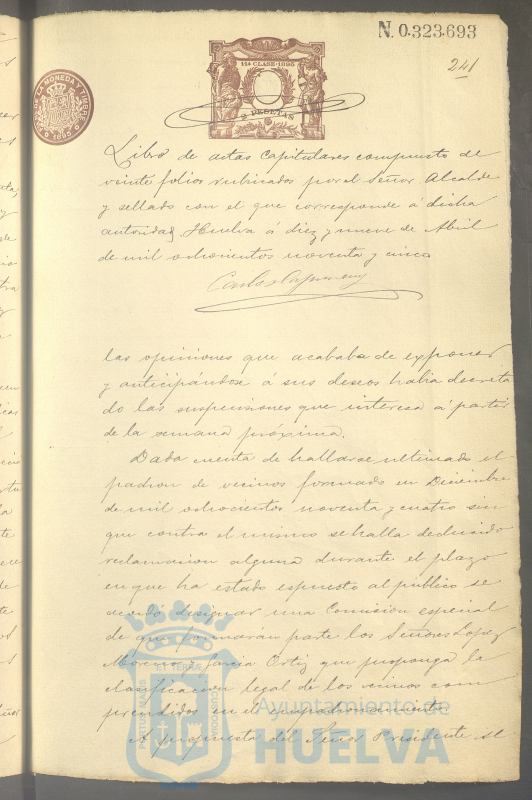 N. 0.323.693
241
11ª CLASE-1895
2 PESETAS
Libro de actas Capitulares compuesto de
veinte folios rubricados por el Señor Alcalde
y sellado con el que corresponde á dicha
autoridad, Huelva á diez y nueve de Abril
de mil ochocientos noventa y cinco
las opiniones que acababa de exponer
y anticipándose á sus deseos habia decreta
do las suspensiones que interesa á partir
de la semana próxima.
Dada cuenta de hallarse ultimado el
padron de vecinos formado en Diciembre
de mil ochocientos noventa y cuatro sin
que contra el mismo se halla deducido
reclamacion alguna durante el plazo
en que ha estado espuesto al público se
acordó designar una Comision especial
de que formarán parte los Señores Lopez
Moreno y Garcia Ortiz que proponga la
clasificacion legal de los vecinos com
prendidos en el empadronamiento.
A propuesta del Señor Presidente se
PORTUS MARIS
ET TERRAE
CUSTODIA
Ayuntamiento de
HUELVA